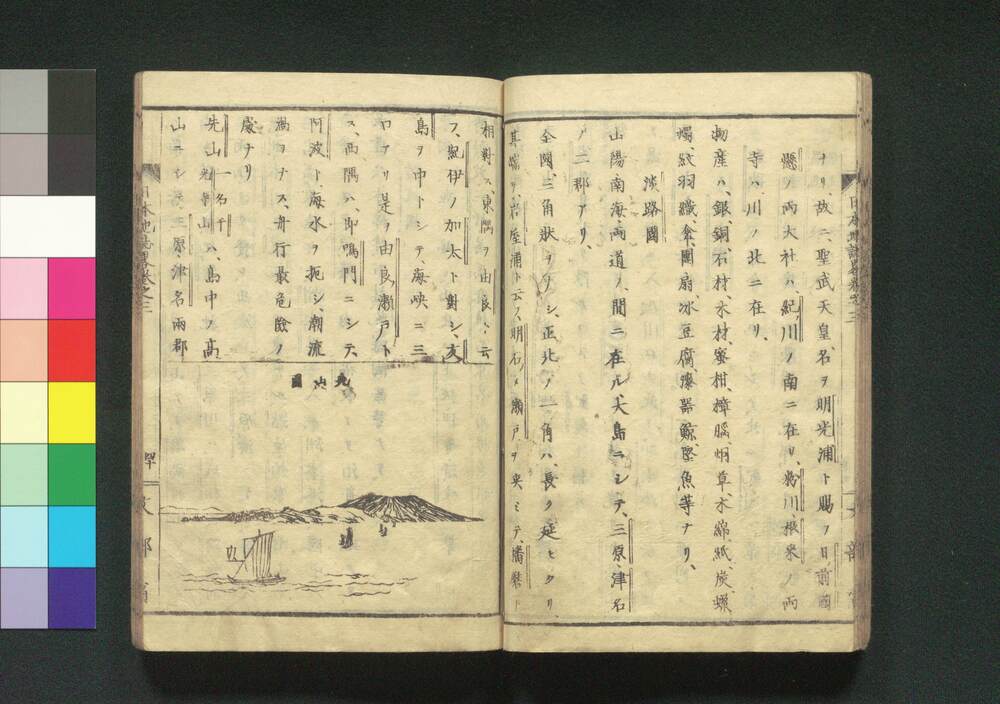 ナリ、故ニ、聖武天皇、名ヲ明光浦ト賜フ、日前國
懸ノ兩大社ハ、紀ノ川ノ南ニ在リ、粉川、根來ノ兩
寺ハ、川ノ北ニ在リ、
物産ハ、銀、銅、石材、木材、蜜柑、樟腦、烟草、木綿、紙、炭、蠟
燭、紋羽織、傘、團扇、冰豆腐、漆器、鯨、堅魚等ナリ、
淡路國
山陽、南海、兩道ノ、間ニ在ル、大島ニシテ、三原、津名
ノ二郡アリ、
全國、三角狀ヲナシ、正北ノ一角ハ、長ク延ビタリ、
其端ヲ、岩屋浦ト云フ、明石ノ瀨戸ヲ夾ミテ、播磨ト
相對ス、東隅ヲ由良ト云
フ、紀伊ノ加太ト對シ、友
島ヲ中トシテ、海峽ニ三
口アリ、是ヲ由良瀨戸ト
ス、西隅ハ、即鳴門ニシテ、
阿波ト海水ヲ扼シ、潮流
渦ヲナス、舟行最危險ノ
處ナリ
先山一名千光寺山ハ、島中ノ高
山ニシテ、三原、津名兩郡
日本地誌略卷之三
文部省